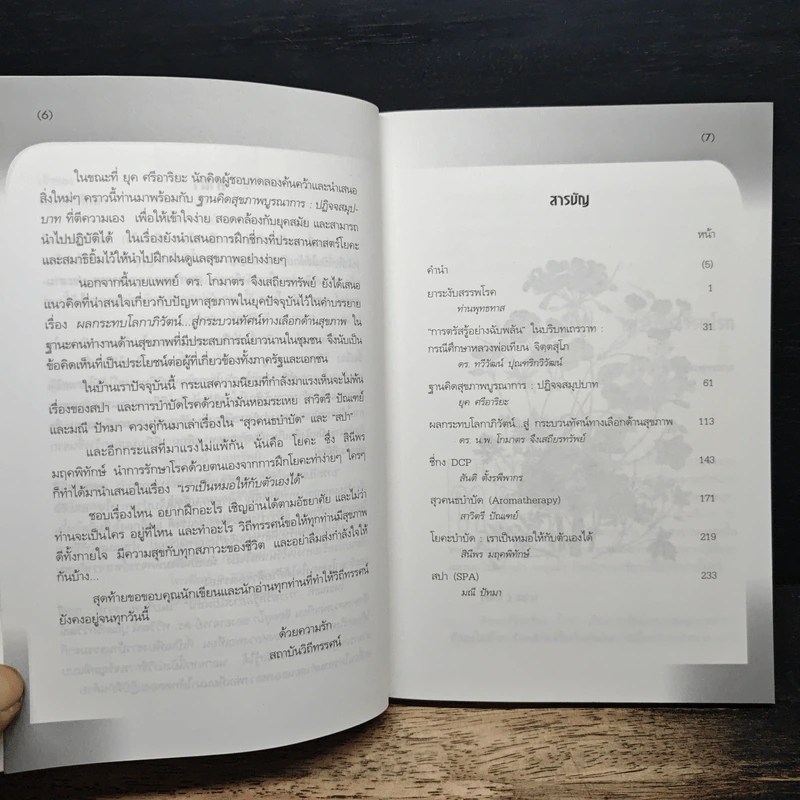 (6)
ในขณะที่ ยุค ศรีอาริยะ นักคิดผู้ชอบทดลองค้นคว้าและนำเสนอ
สิ่งใหม่ๆ คราวนี้ท่านมาพร้อมกับ ฐานคิดสุขภาพบูรณาการ : ปฏิจจสมุป-
บาท ที่ตีความเอง เพื่อให้เข้าใจง่าย สอดคล้องกับยุคสมัย และสามารถ
นำไปปฏิบัติได้ ในเรื่องยังนำเสนอการฝึกชี่กงที่ประสานศาสตร์โยคะ
และสมาธิยิ้มไว้ให้นำไปฝึกฝนดูแลสุขภาพอย่างง่ายๆ
นอกจากนี้นายแพทย์ ดร. โกมาตร จึงเสถียรทรัพย์ ยังได้เสนอ
แนวคิดที่น่าสนใจเกี่ยวกับปัญหาสุขภาพในยุคปัจจุบันไว้ในคำบรรยาย
เรื่อง ผลกระทบโลกาภิวัตน์...สู่กระบวนทัศน์ทางเลือกด้านสุขภาพ ใน
ฐานะคนทำงานด้านสุขภาพที่มีประสบการณ์ยาวนานในชุมชน จึงนับเป็น
ข้อคิดเห็นที่เป็นประโยชน์ต่อผู้ที่เกี่ยวข้องทั้งภาครัฐและเอกชน
ในบ้านเราปัจจุบันนี้ กระแสความนิยมที่กำลังมาแรงเห็นจะไม่พ้น
เรื่องของสปา และการบำบัดโรคด้วยน้ำมันหอมระเหย สาวิตรี ปัณฑย์
และมณี ปัทมา ควงคู่กันมาเล่าเรื่องใน "สุวคนธบำบัด" และ "สปา"
และอีกกระแสที่มาแรงไม่แพ้กัน นั่นคือ โยคะ ซึ่ง สินีพร
มฤคพิทักษ์ นำการรักษาโรคด้วยตนเองจากการฝึกโยคะท่าง่ายๆ ใครๆ
ก็ทำได้มานำเสนอในเรื่อง "เราเป็นหมอให้กับตัวเองได้"
ชอบเรื่องไหน อยากฝึกอะไร เชิญอ่านได้ตามอัธยาศัย และไม่ว่า
ท่านจะเป็นใคร อยู่ที่ไหน และทำอะไร วิถีทรรศน์ขอให้ทุกท่านมีสุขภาพ
ดีทั้งกายใจ มีความสุขกับทุกสภาวะของชีวิต และอย่าลืมส่งกำลังใจให้
กันบ้าง...
สุดท้ายขอขอบคุณนักเขียนและนักอ่านทุกท่านที่ทำให้วิถีทรรศน์
ยังคงอยู่จนทุกวันนี้
ด้วยความรัก
สถาบันวิถีทรรศน์
(7)
สารบัญ
หน้า
คำนำ (5)
ยาระงับสรรพโรค 1
ท่านพุทธทาส
"การตรัสรู้อย่างฉับพลัน" ในปริบทเถรวาท : 31
กรณีศึกษาหลวงพ่อเทียน จิตฺตสุโภ
ดร. ทวีวัฒน์ ปุณฑริกวิวัฒน์
ฐานคิดสุขภาพบูรณาการ : ปฏิจจสมุปบาท 61
ยุค ศรีอาริยะ
ผลกระทบโลกาภิวัตน์...สู่ กระบวนทัศน์ทางเลือกด้านสุขภาพ 113
ดร. น.พ. โกมาตร จึงเสถียรทรัพย์
ชี่กง DCP 143
สันติ ตั้งรพีพากร
สุวคนธบำบัด (Aromatherapy) 171
สาวิตรี ปัณฑย์
โยคะบำบัด : เราเป็นหมอให้กับตัวเองได้ 219
สินีพร มฤคพิทักษ์
สปา (SPA) 233
มณี ปัทมา